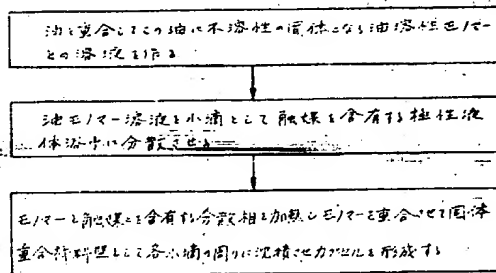 油と重合してこの油に不溶性の固体になる油溶性モノマー
との溶液を作る
油モノマー溶液を小滴として触媒を含有する極性液
体溶中に分散させる
モノマーと触媒とを含有する分散相を加熱しモノマーを重合させて固体
重合材料壁として各小滴の周りに沈積させカプセルを形成する